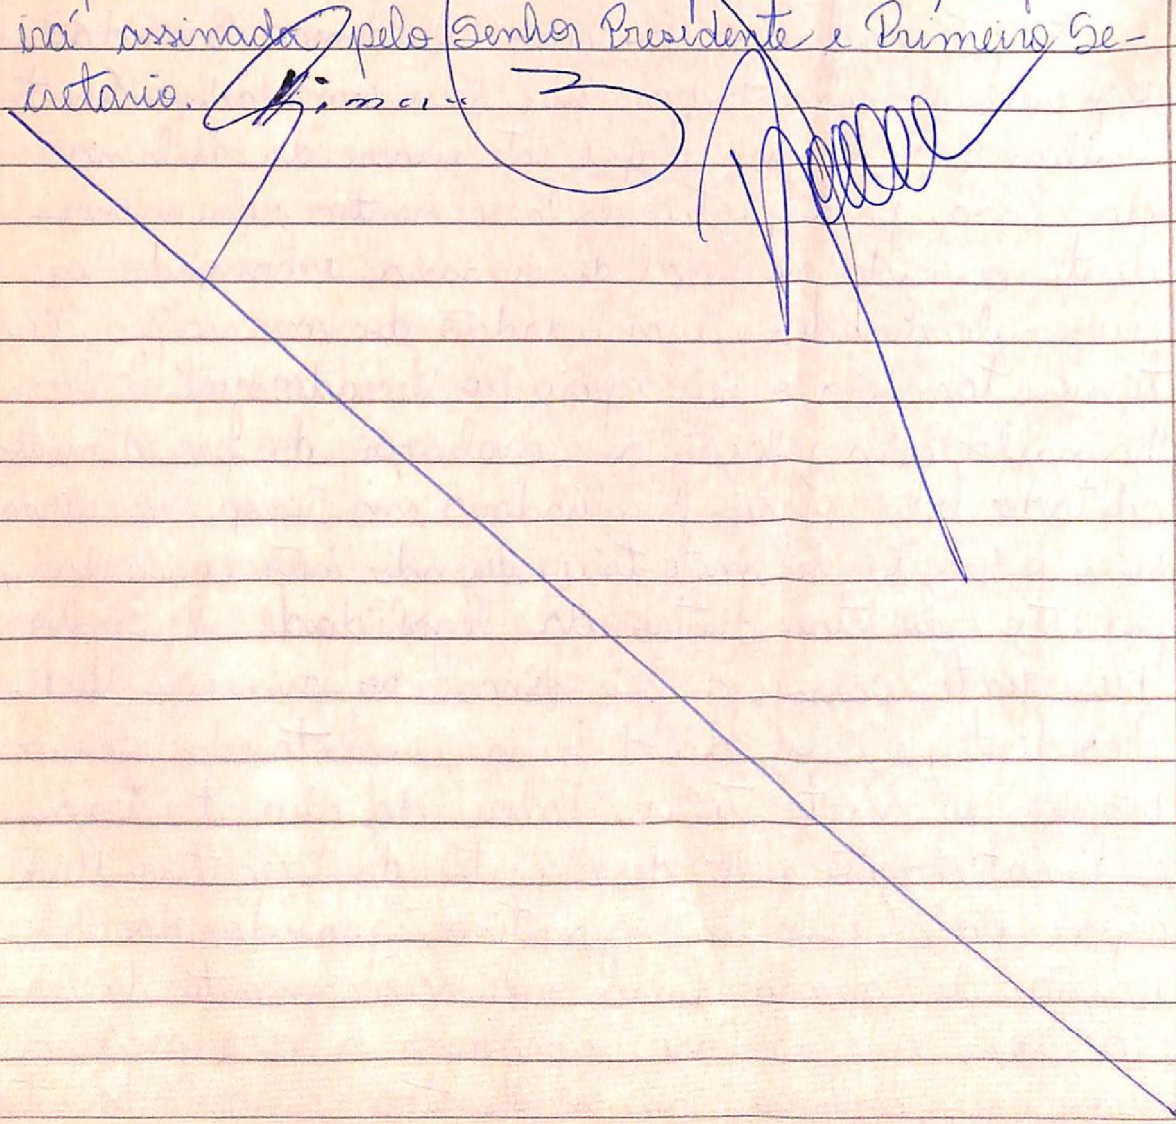 irá assinada pelo Senhor Presidente e Primeiro Se-
cretário.